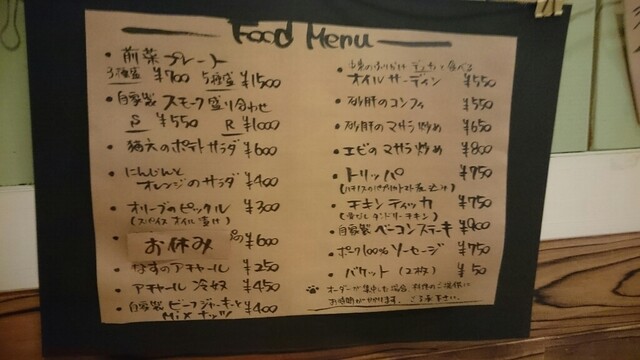 Food Menu
・前菜プレート
3種盛 ¥700 5種盛 ¥1500
・自家製 スモーク盛り合わせ
S ¥550 R ¥1000
・猫犬のポテトサラダ ¥600
・にんじんと
オレンジのサラダ ¥400
・オリーブのピックル ¥300
(スパイスオイル漬け)
お休み ¥600
・なすのアチャール ¥250
・アチャール 冷奴 ¥450
・自家製 ビーフジャーキーと
Mixナッツ ¥400
・オイルサーディン ¥550
・砂肝のコンフィ ¥550
・砂肝のマサラ炒め ¥650
・エビのマサラ炒め ¥800
・トリッパ ¥750
・チキンティッカ ¥750
(骨なしタンドリーチキン)
・自家製 ベーコンステーキ ¥900
・ポーク100% ソーセージ ¥750
・バケット (2枚) ¥50
オーダーが集中した場合、料理のご提供に
お時間がかかります。ご了承下さい。